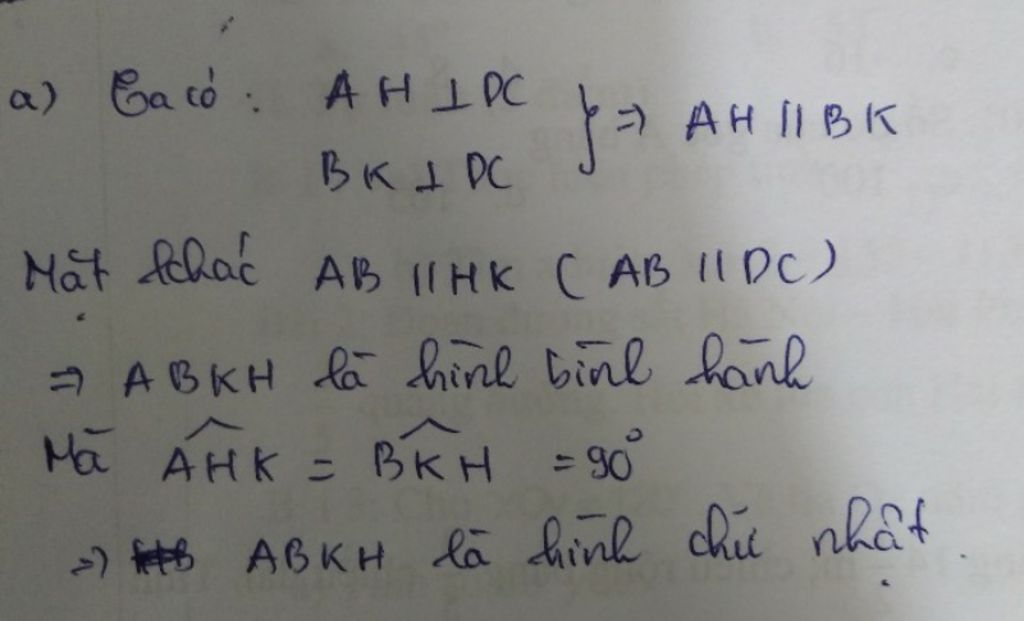 a) Ta có : AH ⊥ DC
BK ⊥ DC } => AH // BK
Mặt khác AB // HK ( AB // DC )
=> ABKH là hình bình hành
Mà \widehat{AHK} = \widehat{BKH} = 90°
=> ABKH là hình chữ nhật.